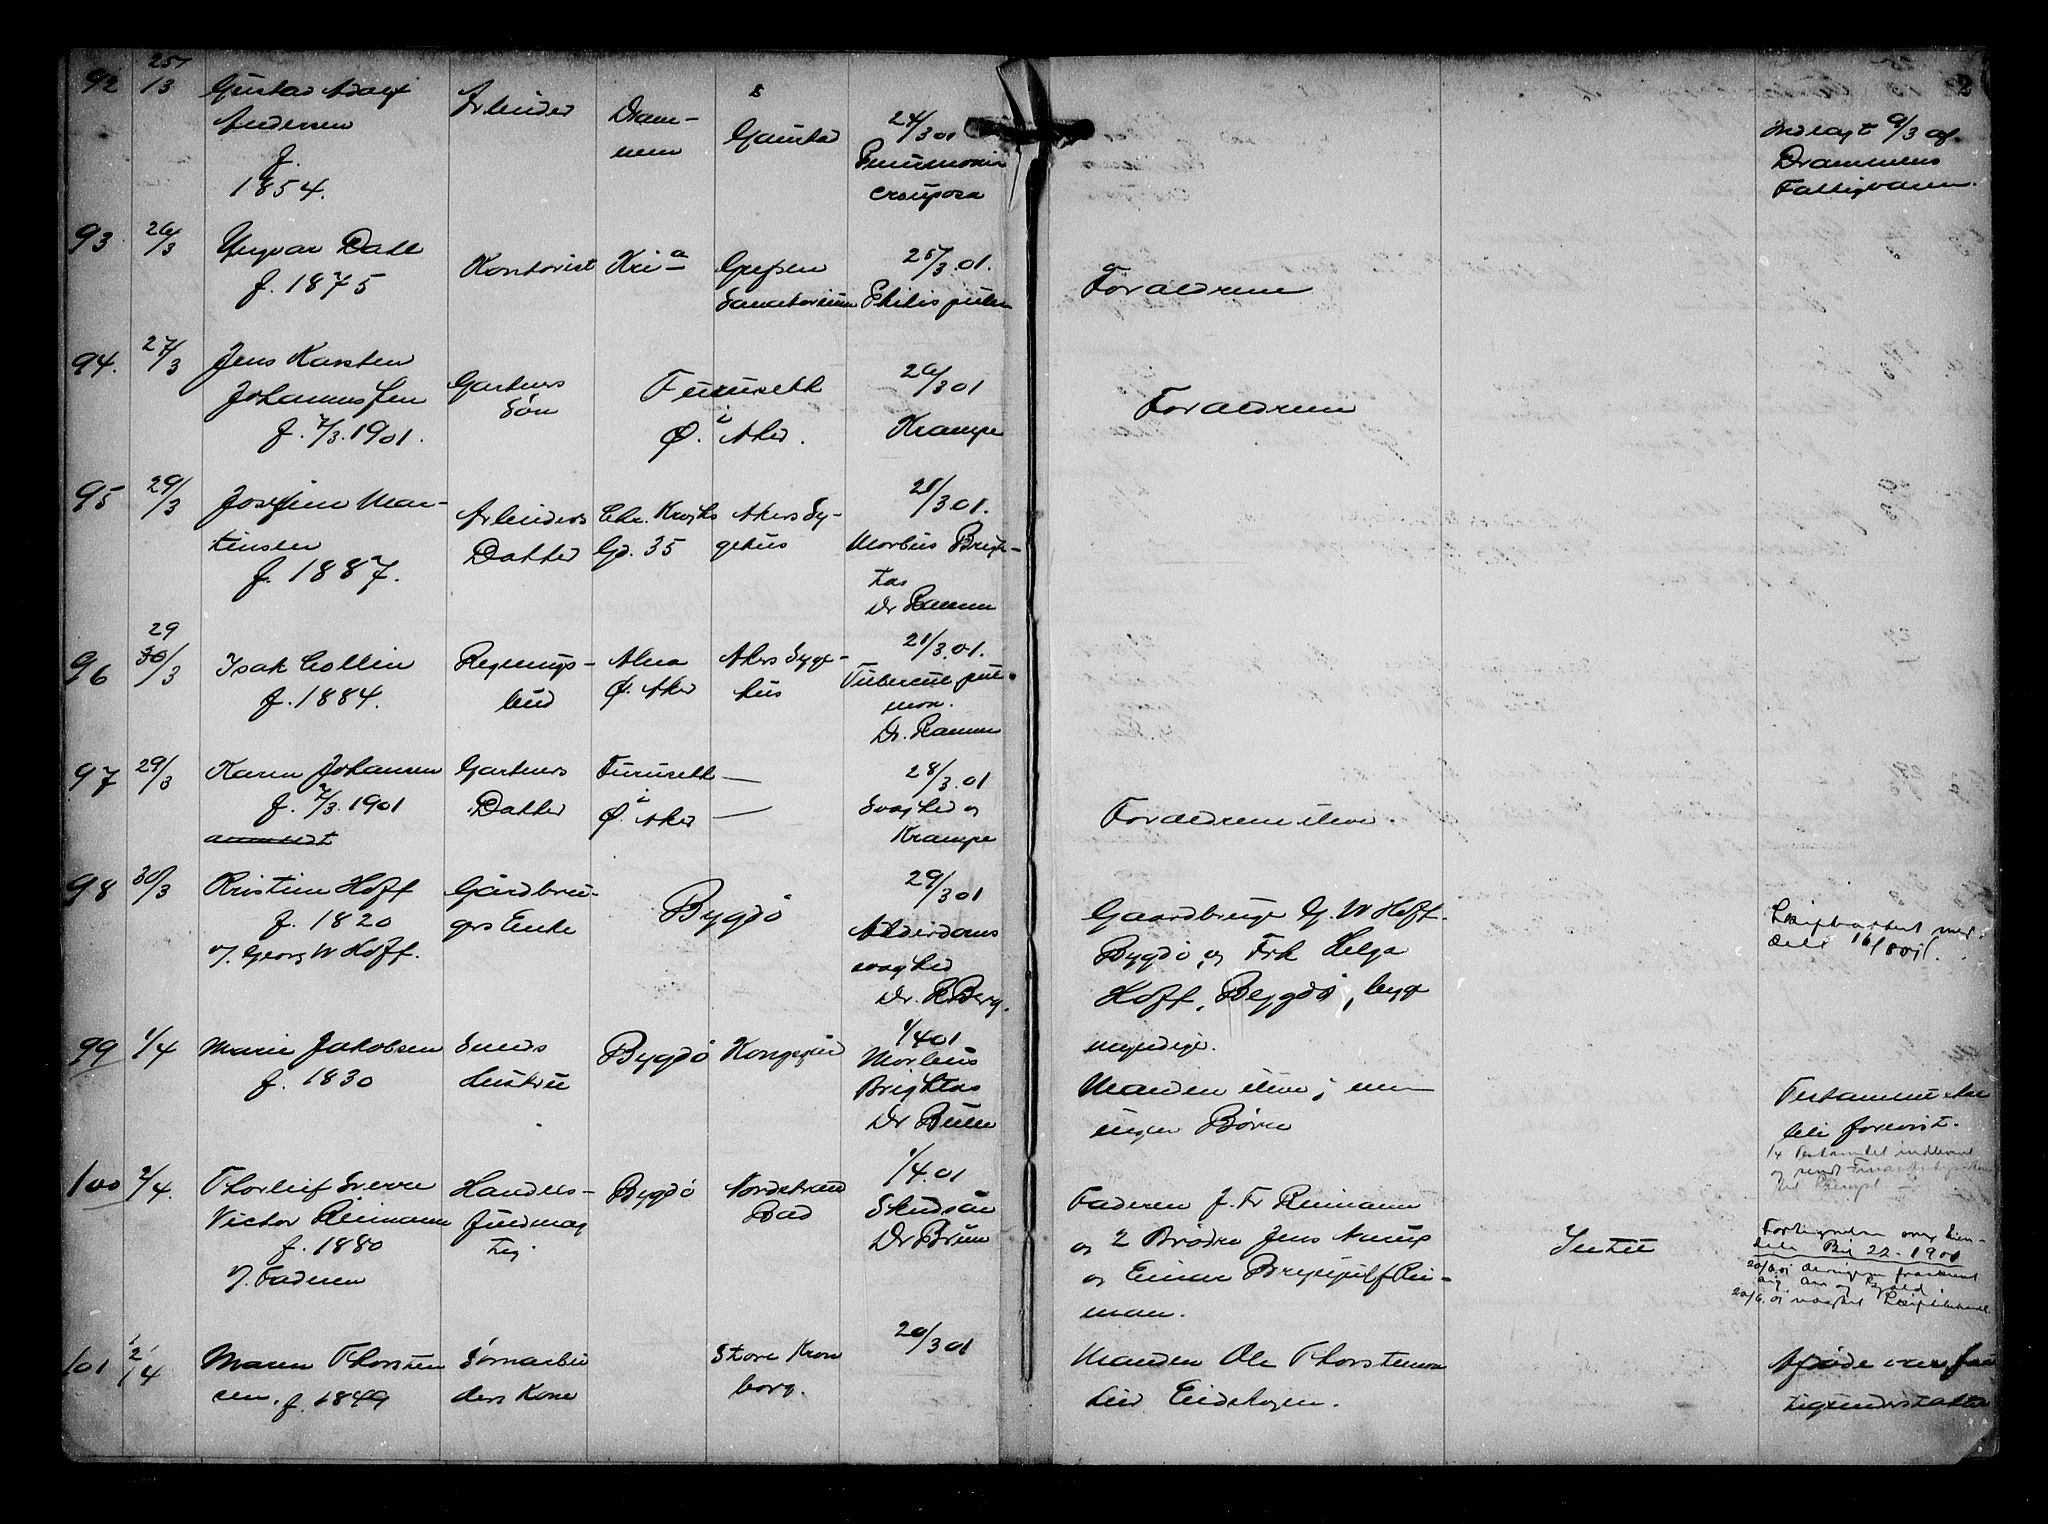 92 25/3 Gustav Adolf
Andersen
f.
1854.
Arbeider
Dram-
men
Gaustad
24/3 01
Pneumonia
crouposa
2
Indlagt 9/3 af
Drammens
Fattigvæsen.
93 26/3 Yngvar Dahl
f. 1875
Kontorist Kri a
Grefsen
Sanatorium
25/3.01.
Phtisis pulm
Forældrene
94. 27/3 Jens Karsten
Johannessen
f. 7/3.1901.
Gartners
Søn
Furuseth
i
Ø. Aker.
26/3 01
Krampe
Forældrene
95 29/3 Josefine Mar-
tinsen
f. 1887.
Arbeiders
Datter
Chr. Kroghs
Gd. 35
Akers Sy-
gehus
28/3.01.
Morbus Brigh-
tos
Dr Ramm
96 29 30/3 Isak Collin
f. 1884.
Regnings-
bud
Alna
Ø. Aker
Akers Syge-
hus
21/3.01.
Tubercul. pul-
mon.
Dr. Ramm
97 29/3 Karen Johansen
f. 7/3.1901
Gartners
Datter
Furuseth
i
Ø. Aker
28/3.01
Svaghed og
Krampe
Forældrene ilive.
98 30/3 Kristine Hoff
f. 1820
v/. Georg W Hoff.
Gårdbru-
gers Enke
Bygdö
29/3 01
Alderdoms
svaghed
Dr. R Berg.
Gaardbruger G. W Hoff.
Bygdö og Frk Helga
Hoff, Bygdö, begge
myndige.
Skifteattest med-
delt 16/8 01
99 1/4 Marie Jakobsen
f. 1830
Smeds
Hustru
Bygdö Kongsgård
1/4 01
Morbus
Brightos
Dr Bull
Manden ilive;
ingen Børn
Testamente
ble forevist.
1/4 Testamentet indleveret
og
100 2/4. Thorleif Sverre
Victor Reimann
f. 1880
v/. Faderen
Handels-
fuldmæg
tig
Bygdö
Nordstrand
Bad
1/4.01
Skudsår
Dr Bruun
Faderen J. Fr Reimann
og 2 Brødre Jens
og Einar Brynjulf Rei-
man.
Intet
Fortegnelse over Ein-
22 - 1901
20/6.01
Arv og Gjæld
20/6.01
101 2/4 Maren Thorsten
sen. f. 1849
Jernarbei
ders Kone
Store Kron
borg.
20/3 01
Manden Ole Thorstensen
ved Eidskogen.
Afdøde var fat
tigunderstøttet